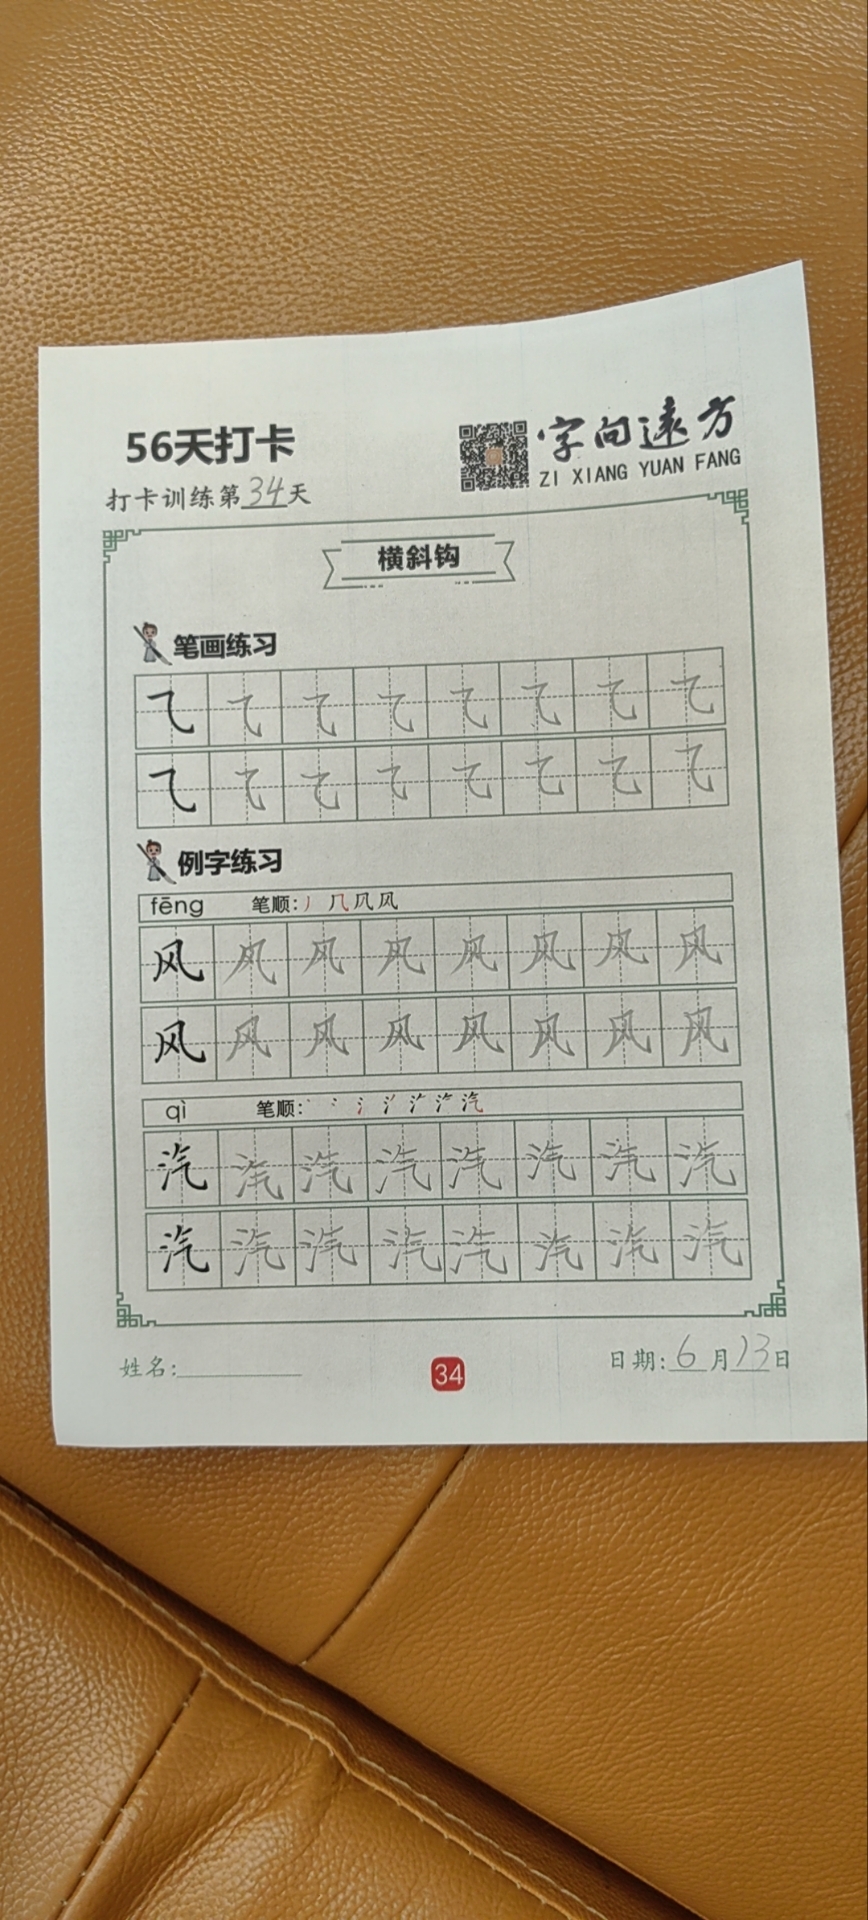 56天打卡
字向远方
ZI XIANG YUAN FANG
打卡训练第34天
横斜钩
笔画练习
⺄ ⺄ ⺄ ⺄ ⺄ ⺄ ⺄ ⺄
⺄ ⺄ ⺄ ⺄ ⺄ ⺄ ⺄ ⺄
例字练习
fēng 笔顺: 丿 几 凤 风
风 风 风 风 风 风 风 风
风 风 风 风 风 风 风 风
qì 笔顺: 汽
汽 汽 汽 汽 汽 汽 汽 汽
汽 汽 汽 汽 汽 汽 汽 汽
姓名:
34
日期:6月13日